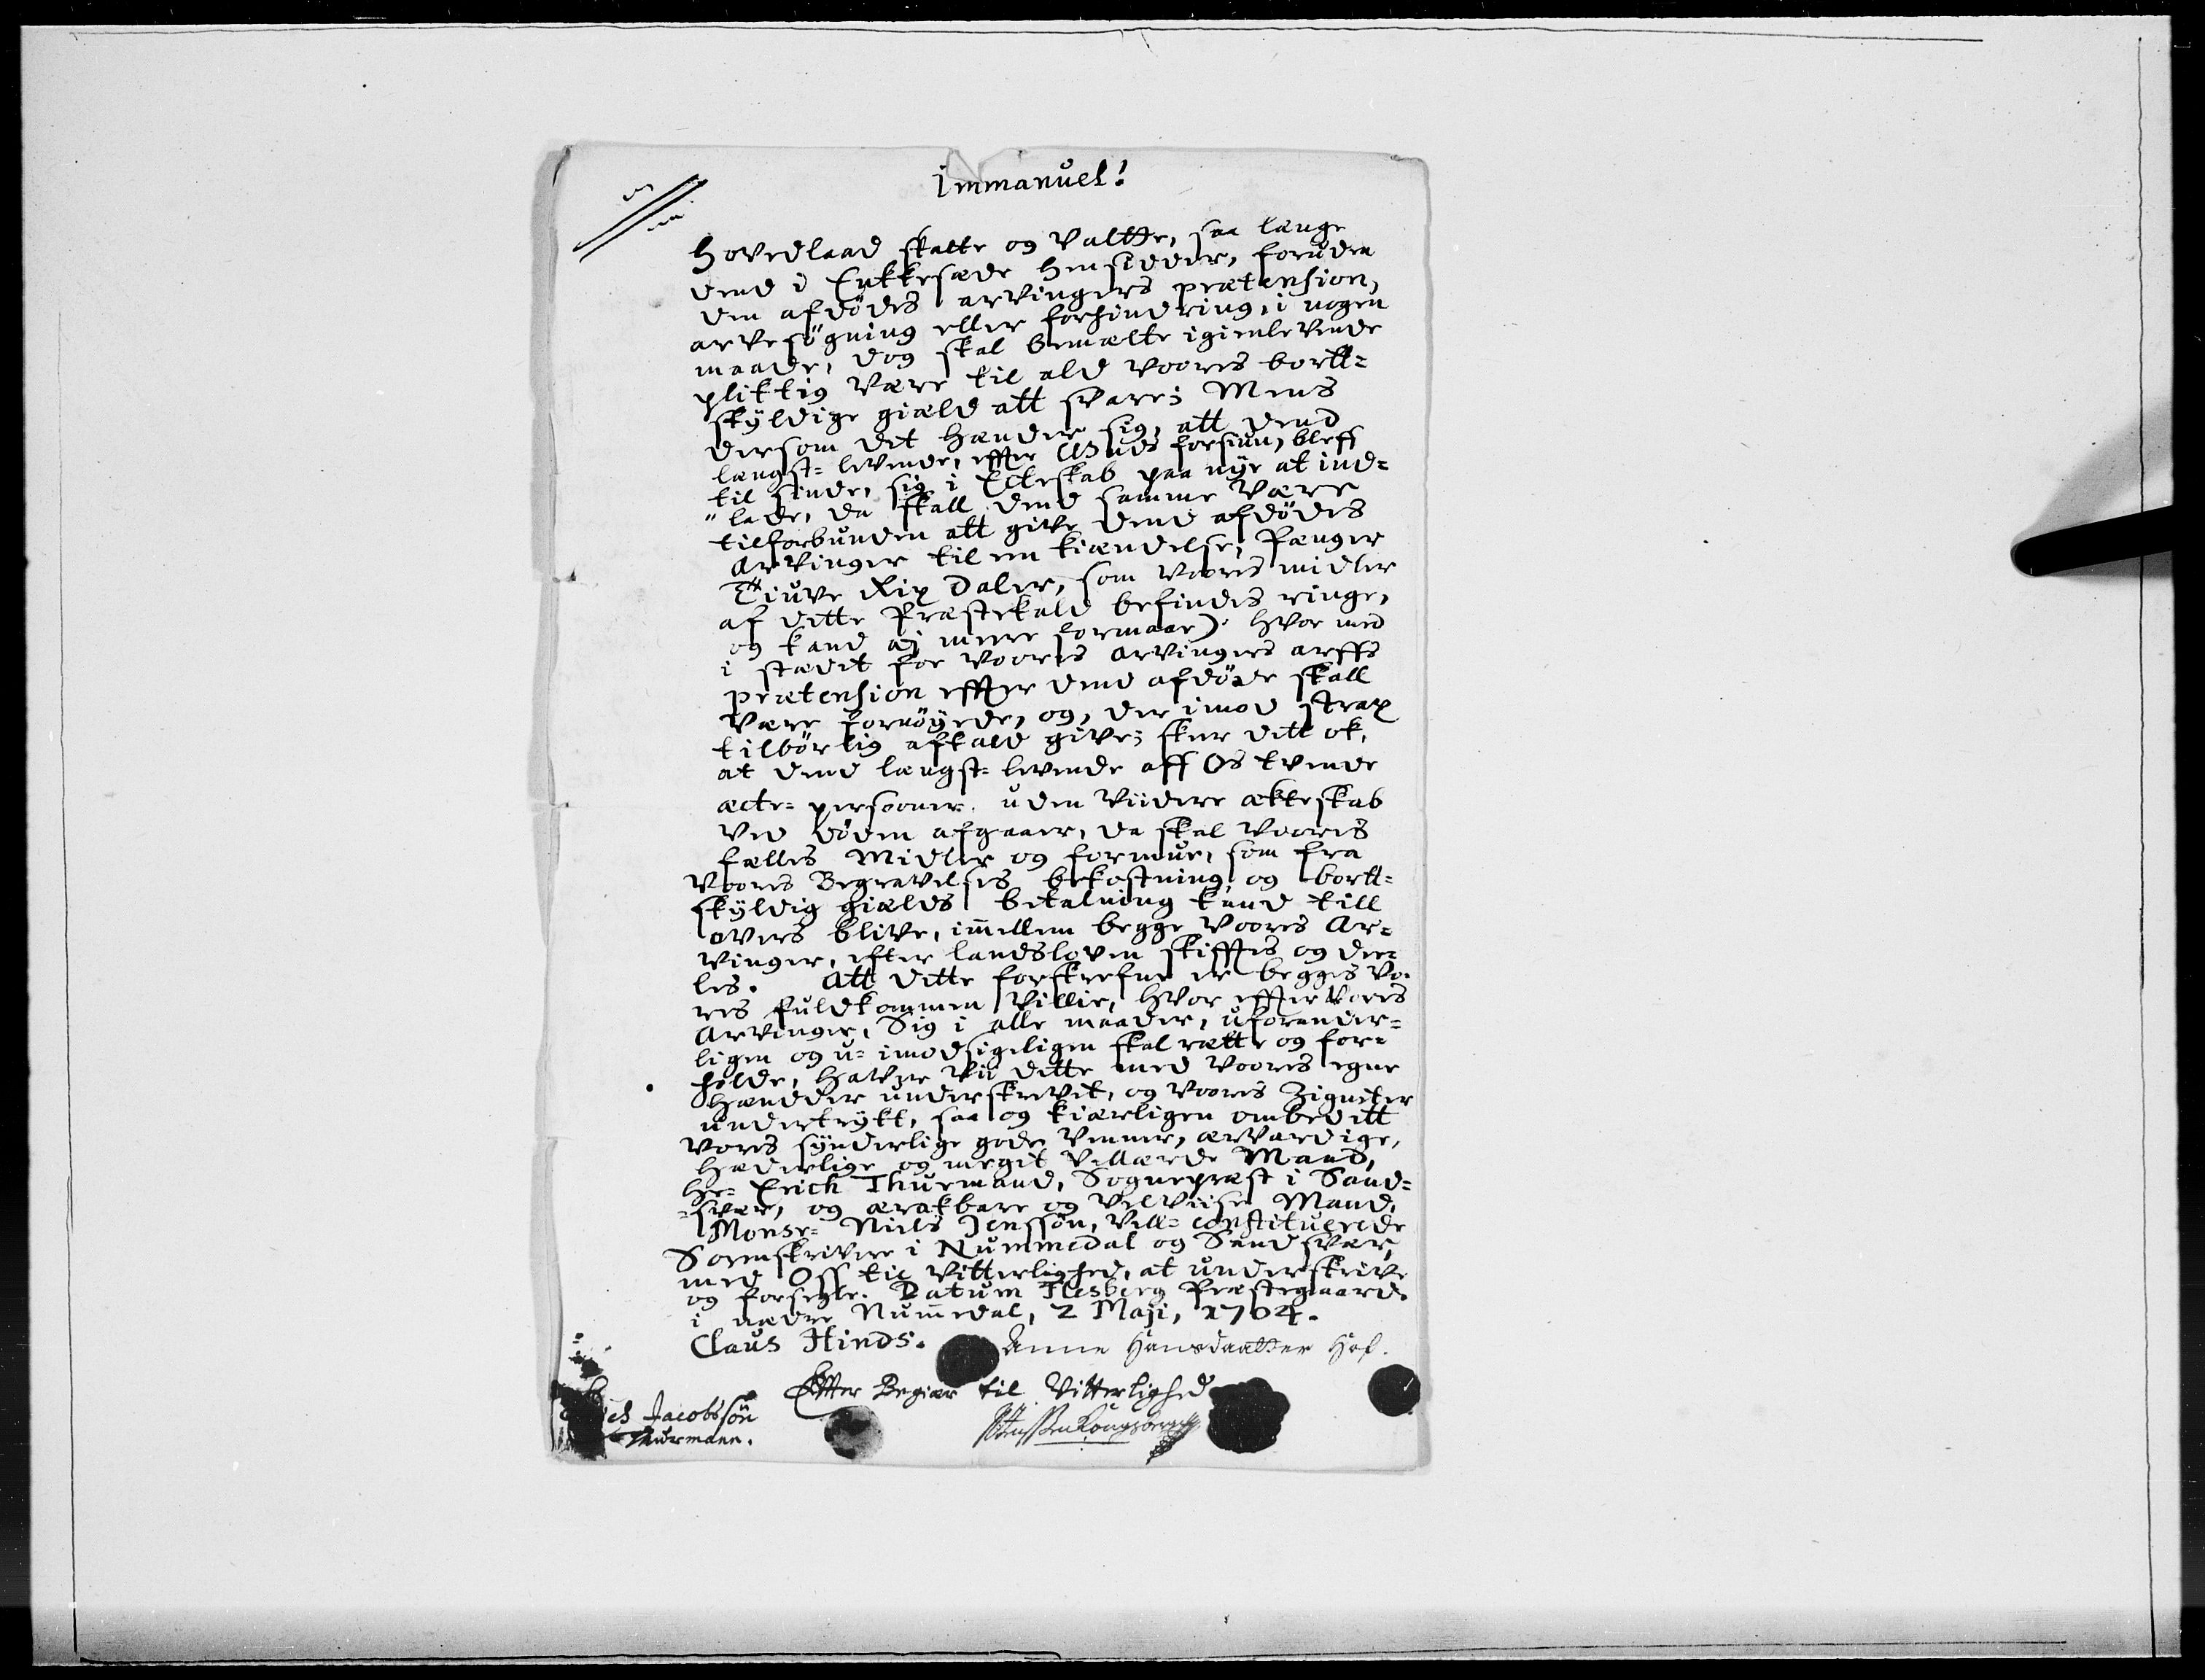 Immanuel!
Hovedlaad skalte og Valtte, saa længe
dend i Enkkesæde hensidder, foruden
den afdødes arvingers prætension,
arvesøgning eller forhindring, i nogen
maade, dog skal bemælte igienlevende
pliktig være til ald voores bortt=
skÿldige giæld att svare; Mens
dersom det hænder sig, att dend
længst= levende, effter Guds forsiun, bleff
til sinde, sig i Ecteskab paa nÿe at ind=
"lade, da skall dend samme være
tilforbunden att give dend afdødes
Arvinger til en kiændelse, Penger
Tiuve Rix Daler, som voores midler
af dette Præstekald befindes ringe,
og kand ej meere formaar). hvor med
i stædet for voores arvingers arffs
prætension effter dend afdøde skall
være fornøÿede, og, der imod strax
tilbørlig afkald give; skeer dett ok,
at dend længst= levende aff Os tvende
ecte= persooner. uden viidere ækteskab
ved døden afgaaer, da skal voores
fælles Midler og formue, som fra
voores Begravelses bekostning og bortt=
skÿldig giælds betalning kand till
overs blive, imellem begge voores Ar=
vinger, efter landsloven skifftes og dee=
les. Att dette forskrefne er begges vo=
res fuldkommen villie, hvor effter vores
Arvinger, Sig i alle maader, uforander=
ligen og u= imodsigeligen skal rætte og for=
holde, hafve vii dette med voores egne
Hændder underskrevet, og voores Zigneter
undertrÿkt, saa og kiærligen ombedett
vores sÿnderlige gode venner, ærværdige,
hæderlige og meget vellærde Mand,
Hr= Erich Thurmand, Sognepræst i Sand=
=svær, og ærakbare og velviise Mand,
Monsr= Niels Jenssøn, Vell= constituerede
Sorenskriver i Nummedal og Sandsvær,
med Oss til vitterlighed, at underskrive
og forsegle. Datum Flesberg Præstegaard.
i nædre Numedal, 2 Maji, 1704.
Claus Hinds. Anne Hansdaatter Hof.
Effter Begiær til Vitterlighed
Jacobssøn
Thurmann.